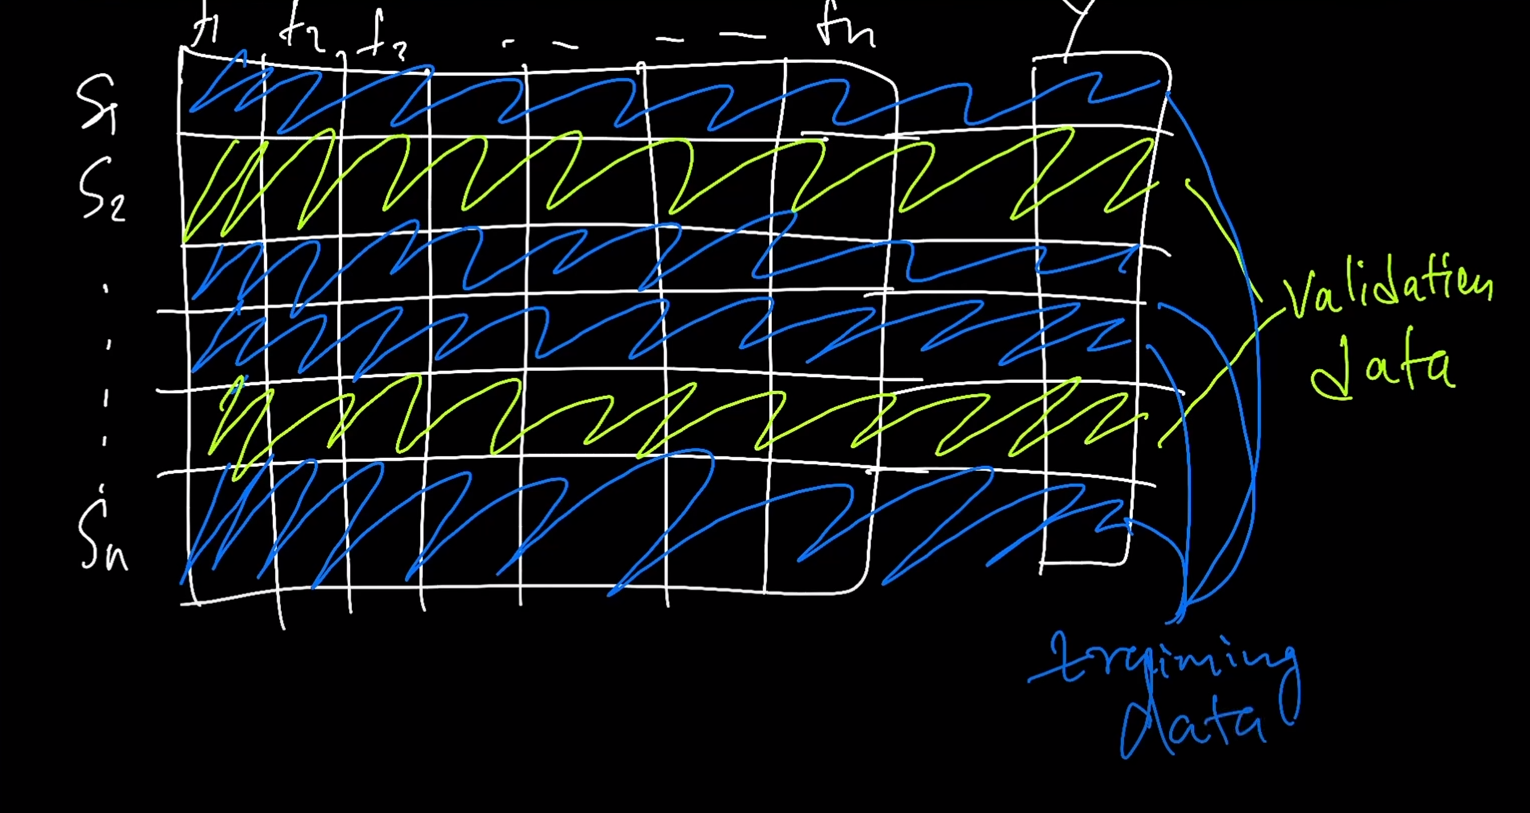 f1 f2 f3 . - - - fn Y
S1
S2
.
.
.
.
.
Sn
Validation
data
training
data